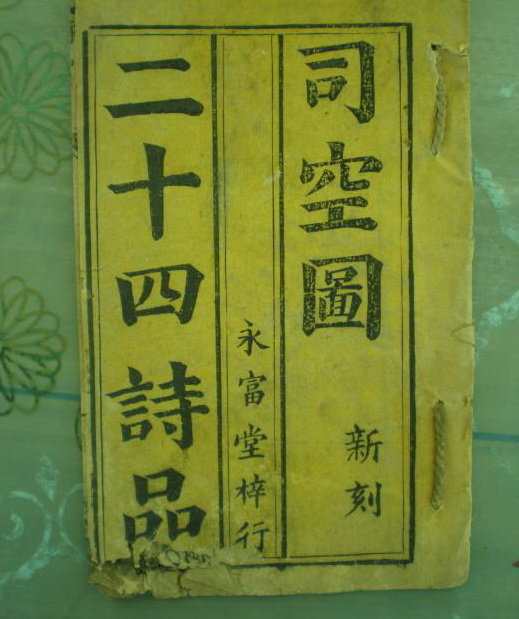 司空圖
新刻
永富堂梓行
二十四詩品